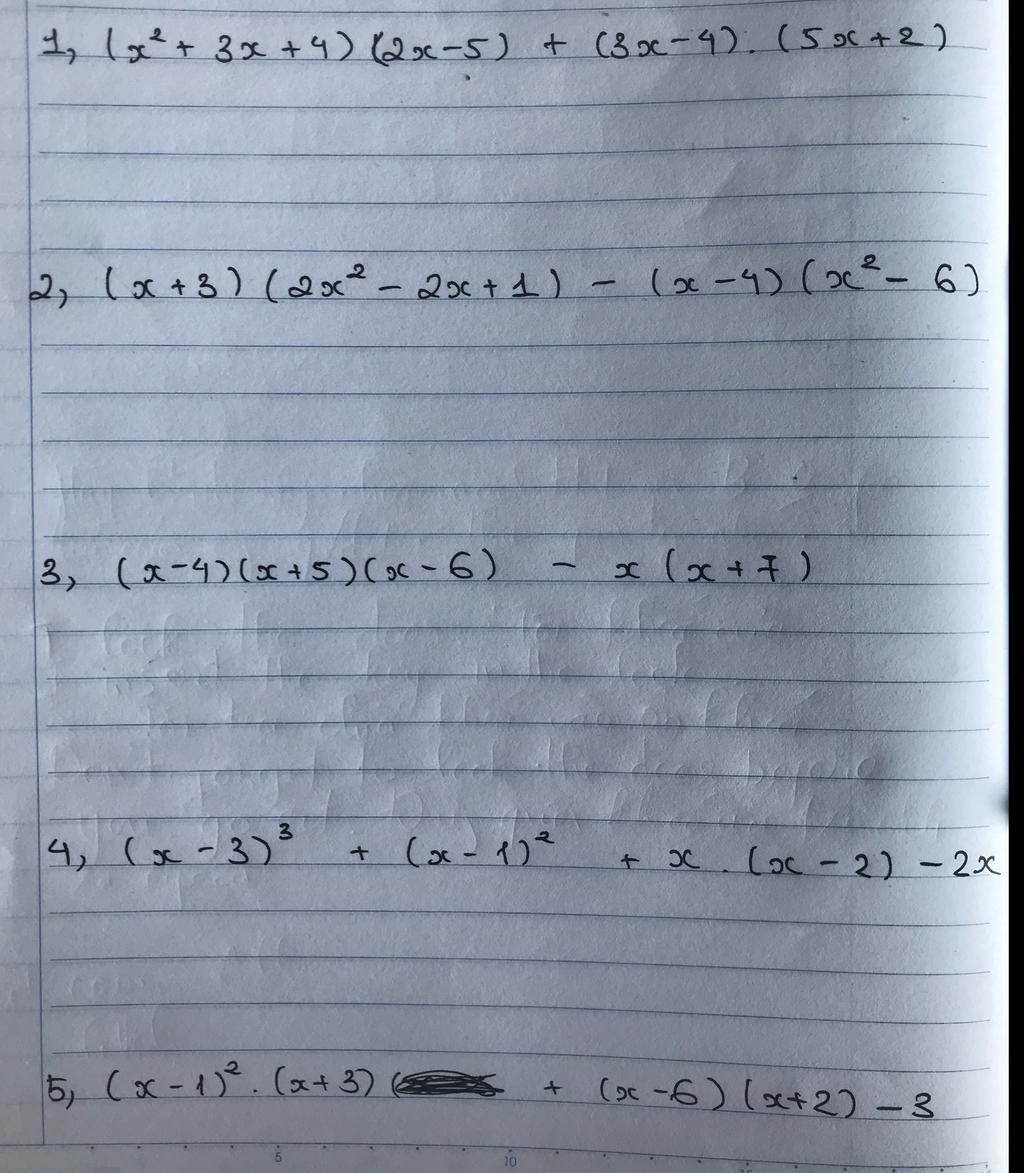 1, (x² + 3x + 4) (2x - 5) + (3x - 4) . (5x + 2)
2, (x + 3) (2x² - 2x + 1) - (x - 4) (x² - 6)
3, (x - 4) (x + 5) (x - 6) - x (x + 7)
4, (x - 3)³ + (x - 1)² + x . (x - 2) - 2x
5, (x - 1)² . (x + 3) ( + (x - 6) (x + 2) - 3
5 10